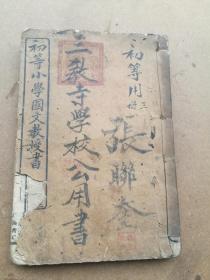 初等用
三册
張聯奎
三教寺學校公用書
初等小學國文教授書